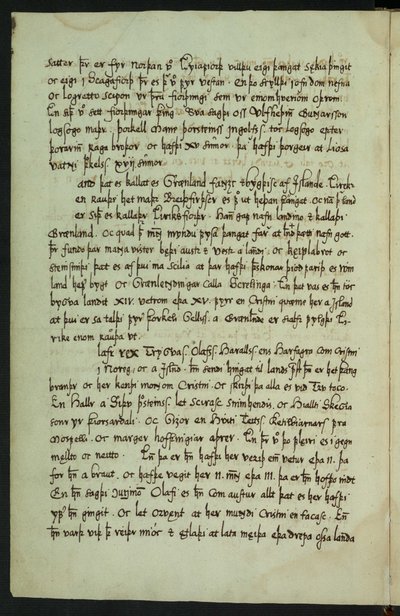 sætter þr er fyr norþan vǫ́ Eyiafiorþ villdu eigi þangat sękia þingit
oc eigi i Scagafiorþ þr es þr vǫ́ fyr vestan. En þo scylldi iofn dom nefna
oc logretto scipon yr þra fiorþungi sem yr einomhveriom oþrom.
En siþ vǫ́ sett fiorþungar þing. Sva sagþi oss Ulfheþin Gunarssor
logsogo maþr. Þorkell Mane Þorsteinss Ingolfss toc logsogo epter
Þorarin Raga broþor oc hafþi XV sumor. þa hafþi Þorgeir at Liosa
vatni Þkelss XVII sumor.
Land þat es kallat es Grænland fanzc oc bygþisc af Islande. Eirikr
en Rauþe het maþr Breiþfirþscr es fór ut heþan þangat. oc nā þr land
er siþ es kallaþr Eiriksfiorþr. Hań gaf nafn landino. oc kallaþi
Grænland. oc quaþ þ mń myndu fysa þangat farar at landit ætti nafn gott.
þr fundo þar manna vister bęþi austr oc vestr a landi. oc keiplabrot oc
steinsmiþi þat es af þui ma scilia at þar hafþi þesskonar þioþ fariþ es Vin
land hefir bygt oc Grænlendingar calla Screlinga. En þat vas es hń tóc
bygva landit XIV. vetrom eþa XV. fyrr en Cristni quæme her a Island
at þui er sa talþi fyr Þorkeli Gelliss. a Grænlande er sialfr fylgþi Ei
rike enom rauþa ut.
Olafr rex Trygvas. Olafss. Haralldss ens Harfagra com Cristni
i Noreg. oc a Island. hń sendi hingat til lands prest þań er het þang
brandr oc her kendi monom Cristni. oc skirþi þa alla es viþ tru toco.
En Hallr a Siþo Þsteinss. let scirasc snimhendis. oc Hialti Skeggia
sonr yr Þiorsardali. oc Gizor en Hviti Teitss. Ketilbiarnarss fra
Mosfelli. oc marger hofþingiar aþrer. En þr vǫ́ þo fleiri es i gegn
mælto oc neitto. En þa er hń hafþi her veriþ ein vetr eþa II. þa
for hń a braut. oc hafþe vegit her II. mń eþa III. þa er hń hofþo nidt
En hń sagþi konungenom Olafi es hń com austr allt þat es her hafþi
yf hń gingit. oc let orvænt at her mundi Cristni en tacasc. En
hń varþ viþ þat reiþr mioc oc ætlaþi at lata meiþa eþa drepa ossa landa